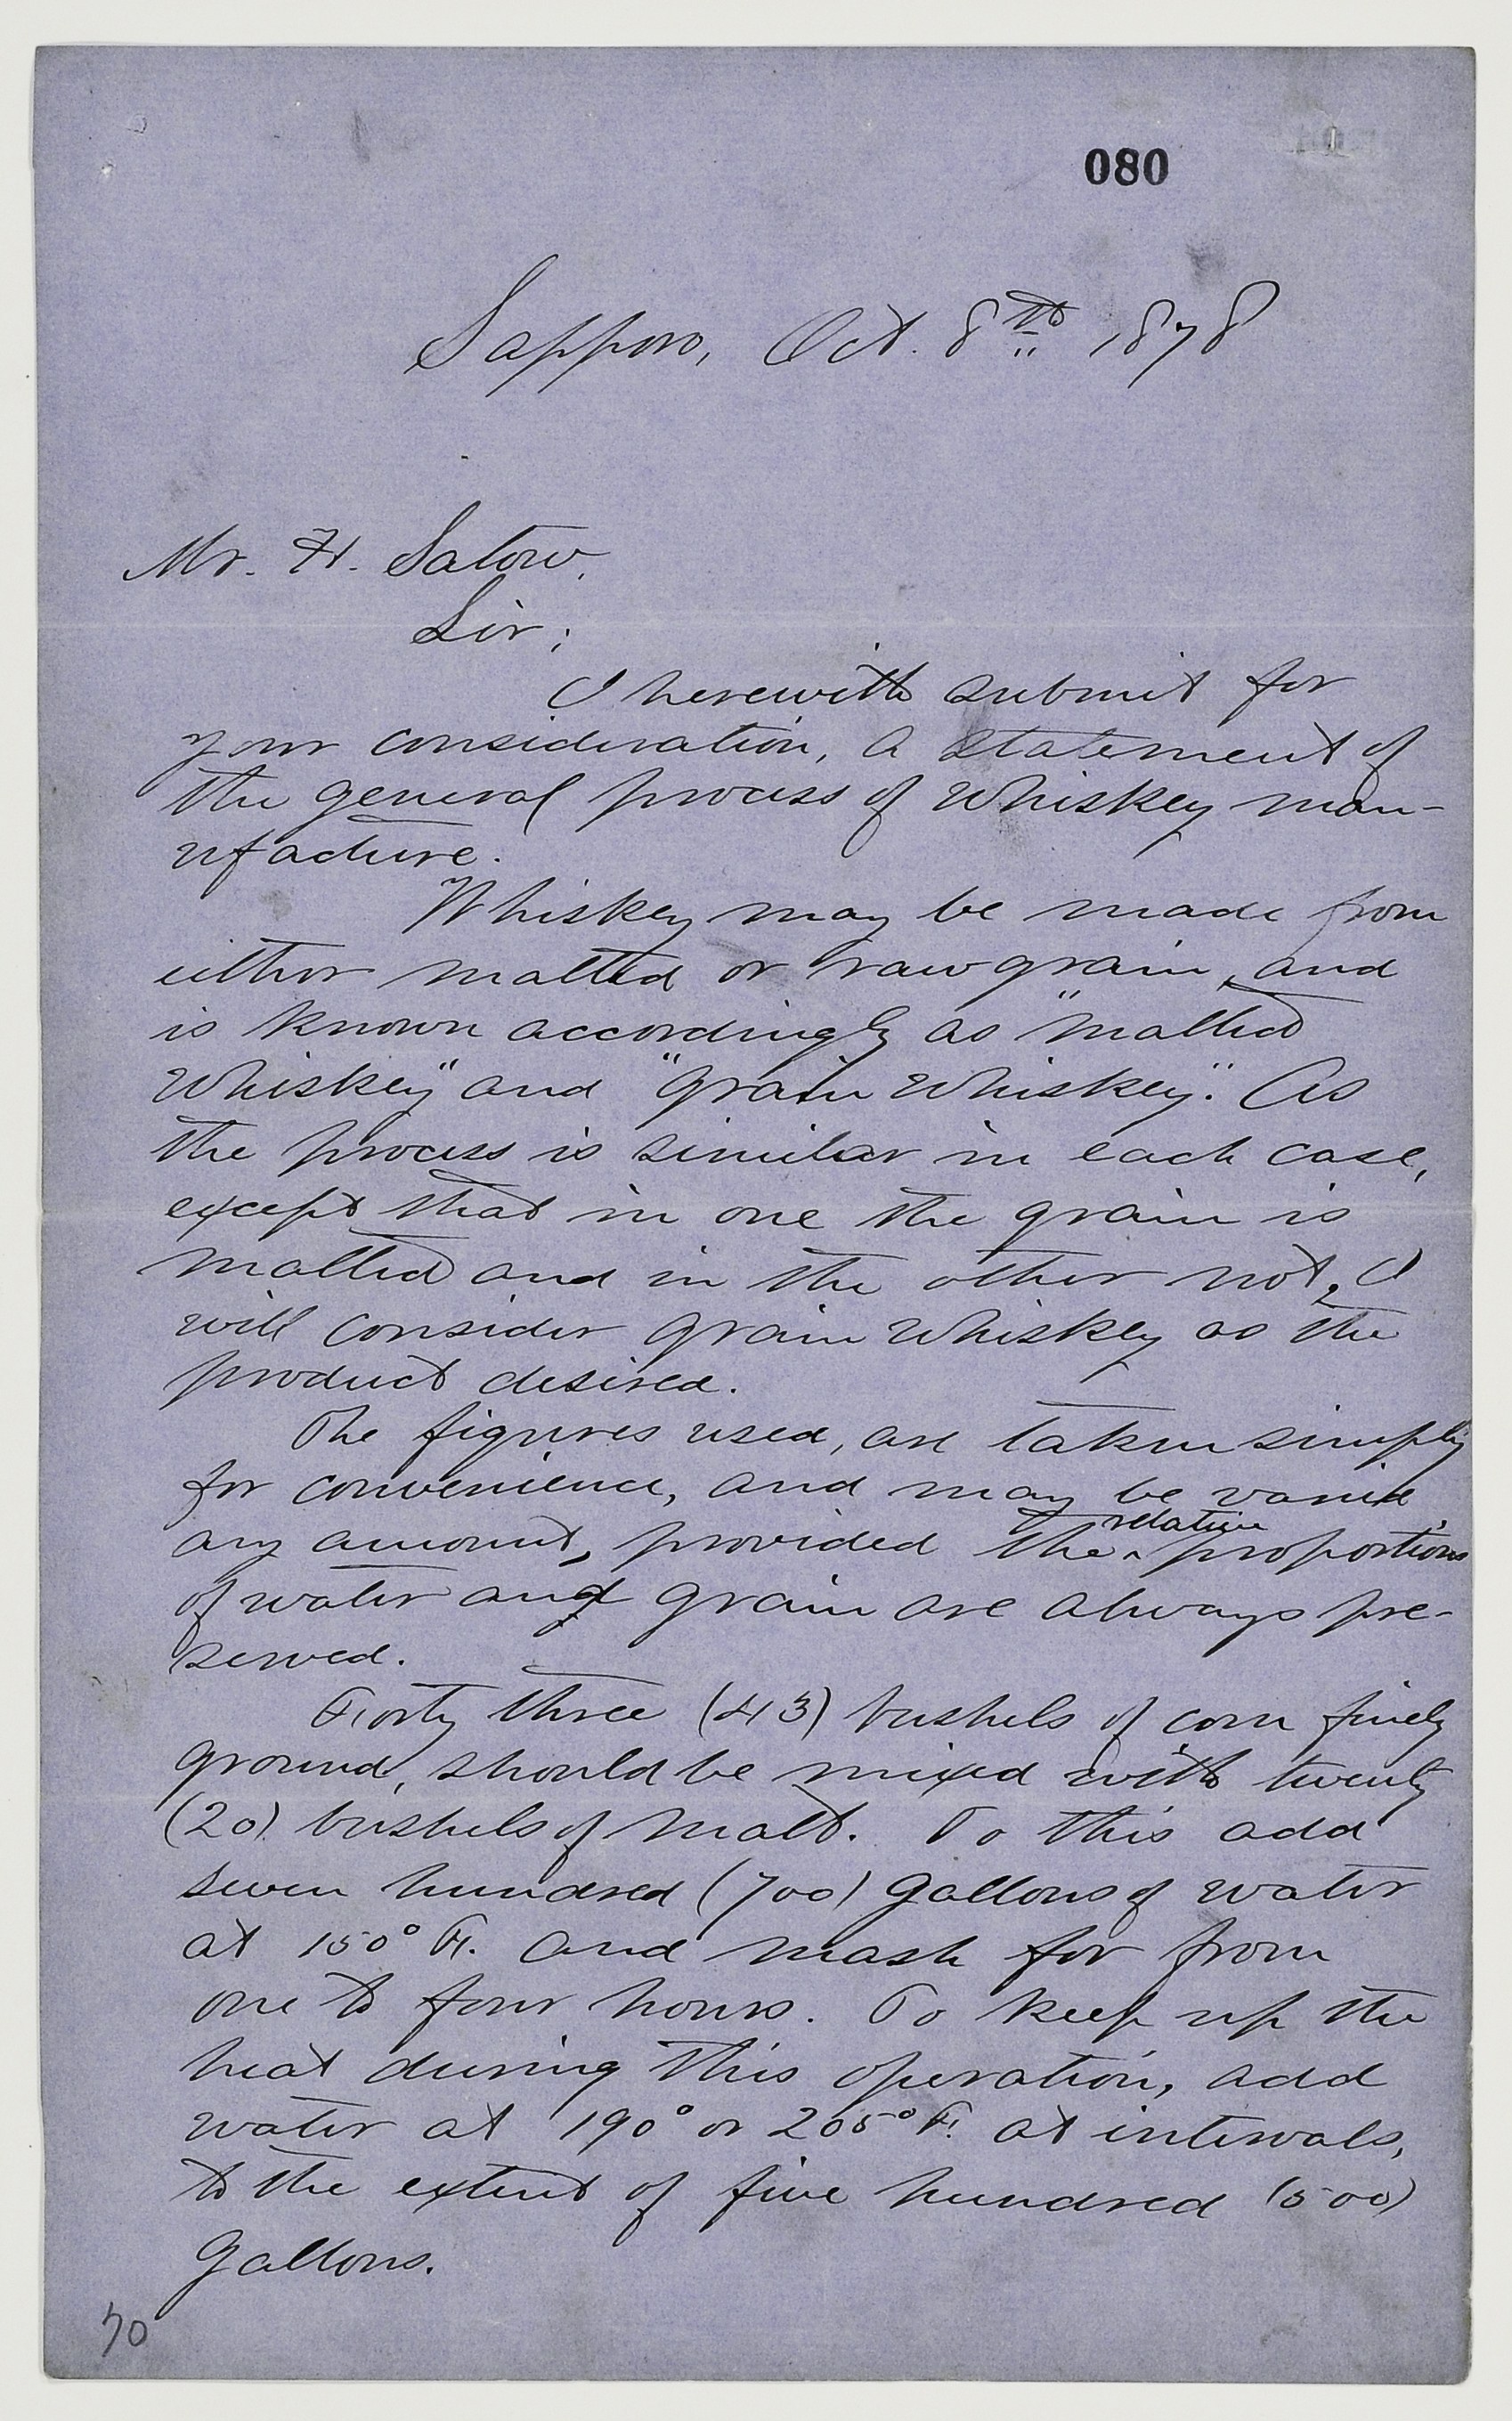 080
Sapporo, Oct. 8th 1878
Mr. H. Satow.
Sir;
I herewith submit for
your consideration, a statement of
the general process of Whiskey man-
ufacture.
Whiskey may be made from
either malted or raw grain, and
is known accordingly as "malted
Whiskey" and "grain Whiskey." As
the process is similar in each case,
except that in one the grain is
malted and in the other not, I
will consider grain Whiskey as the
product desired.
The figures used, are taken simply
for convenience, and may be varied
any amount, provided the ^ relative proportions
of water and grain are always pre-
served.
Forty three (43) bushels of corn finely
ground, should be mixed with twenty
(20) bushels of malt. To this add
seven hundred (700) gallons of water
at 150° F. and mash for from
one to four hours. To keep up the
heat during this operation, add
water at 190° or 205° F. at intervals,
to the extent of five hundred (500)
gallons.
70